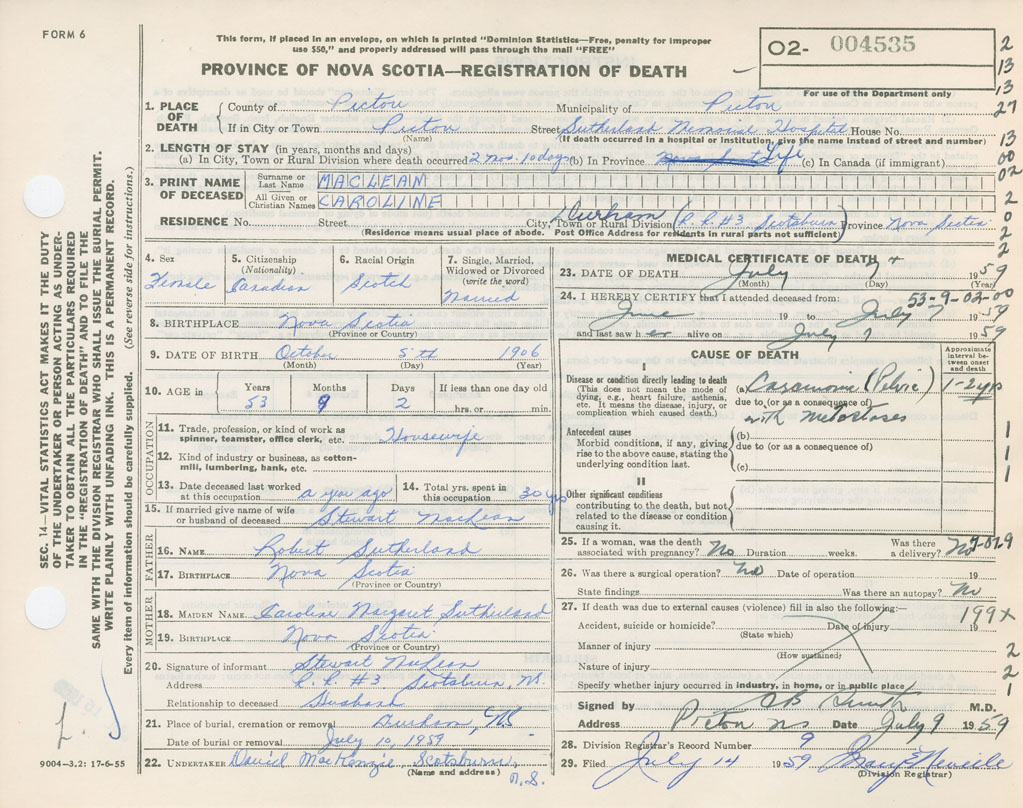 FORM 6
This form, if placed in an envelope, on which is printed "Dominion Statistics—Free, penalty for improper
use $50," and properly addressed will pass through the mail "FREE"
PROVINCE OF NOVA SCOTIA—REGISTRATION OF DEATH
O2- 004535
For use of the Department only
2
13
13
27
13
00
02
2
0
2
2
1. PLACE OF DEATH County of Pictou Municipality of Pictou
If in City or Town Pictou Street Sutherland Memorial Hospital House No.
(Name) (If death occurred in a hospital or institution, give the name instead of street and number)
2. LENGTH OF STAY (in years, months and days)
(a) In City, Town or Rural Division where death occurred 2 mos. 10 days (b) In Province Life (c) In Canada (if immigrant)
3. PRINT NAME OF DECEASED Surname or Last Name MACLEAN
All Given or Christian Names CAROLINE
RESIDENCE No. Street City, Town or Rural Division Durham (R.R. #3 Scotsburn) Province Nova Scotia
(Residence means usual place of abode. Post Office Address for residents in rural parts not sufficient)
4. Sex Female
5. Citizenship (Nationality) Canadian
6. Racial Origin Scotch
7. Single, Married, Widowed or Divorced (write the word) Married
8. BIRTHPLACE Nova Scotia
(Province or Country)
9. DATE OF BIRTH October 5th 1906
(Month) (Day) (Year)
10. AGE in Years Months Days If less than one day old
53 9 2 hrs. or min.
OCCUPATION
11. Trade, profession, or kind of work as
spinner, teamster, office clerk, etc. Housewife
12. Kind of industry or business, as cotton-
mill, lumbering, bank, etc.
13. Date deceased last worked
at this occupation a year ago
14. Total yrs. spent in
this occupation 30 yrs
15. If married give name of wife
or husband of deceased Stewart MacLean
FATHER
16. NAME Robert Sutherland
17. BIRTHPLACE Nova Scotia
(Province or Country)
MOTHER
18. MAIDEN NAME Caroline Margaret Sutherland
19. BIRTHPLACE Nova Scotia
(Province or Country)
20. Signature of informant Stewart McLean
Address R.R. #3 Scotsburn, N.S.
Relationship to deceased Husband
21. Place of burial, cremation or removal Durham, N.S
Date of burial or removal July 10, 1959
22. UNDERTAKER David MacKenzie, Scotsburn, N.S.
(Name and address)
MEDICAL CERTIFICATE OF DEATH
23. DATE OF DEATH July 7 1959
(Month) (Day) (Year)
24. I HEREBY CERTIFY that I attended deceased from: 53-9-02-00
June 19 to July 7 1959
and last saw h er alive on July 7 1959
CAUSE OF DEATH
Approximate interval between onset and death
I
Disease or condition directly leading to death
(This does not mean the mode of
dying, e.g., heart failure, asthenia,
etc. It means the disease, injury, or
complication which caused death.)
(a) Carcinoma (Pelvic) 1-2 yrs
due to (or as a consequence of)
with Metastases
Antecedent causes
Morbid conditions, if any, giving
rise to the above cause, stating the
underlying condition last.
(b)
due to (or as a consequence of)
(c)
1
1
1
II
Other significant conditions
contributing to the death, but not
related to the disease or condition
causing it.
25. If a woman, was the death
associated with pregnancy? No Duration weeks. Was there a delivery? No
26. Was there a surgical operation? No Date of operation 19
State findings Was there an autopsy? No
27. If death was due to external causes (violence) fill in also the following:—
199X
Accident, suicide or homicide? Date of injury 19
(State which)
Manner of injury 2
(How sustained)
Nature of injury 2
Specify whether injury occurred in industry, in home, or in public place 1
Signed by M.D.
Address Pictou NS Date July 9 1959
28. Division Registrar's Record Number 9
29. Filed July 14 1959
(Division Registrar)
SEC. 14—VITAL STATISTICS ACT MAKES IT THE DUTY
OF THE UNDERTAKER OR PERSON ACTING AS UNDER-
TAKER TO OBTAIN ALL THE PARTICULARS REQUIRED
IN THE "REGISTRATION OF DEATH" AND TO FILE THE
SAME WITH THE DIVISION REGISTRAR WHO SHALL ISSUE THE BURIAL PERMIT.
WRITE PLAINLY WITH UNFADING INK. THIS IS A PERMANENT RECORD.
Every item of information should be carefully supplied. (See reverse side for instructions.)
9004—3.2: 17-6-55